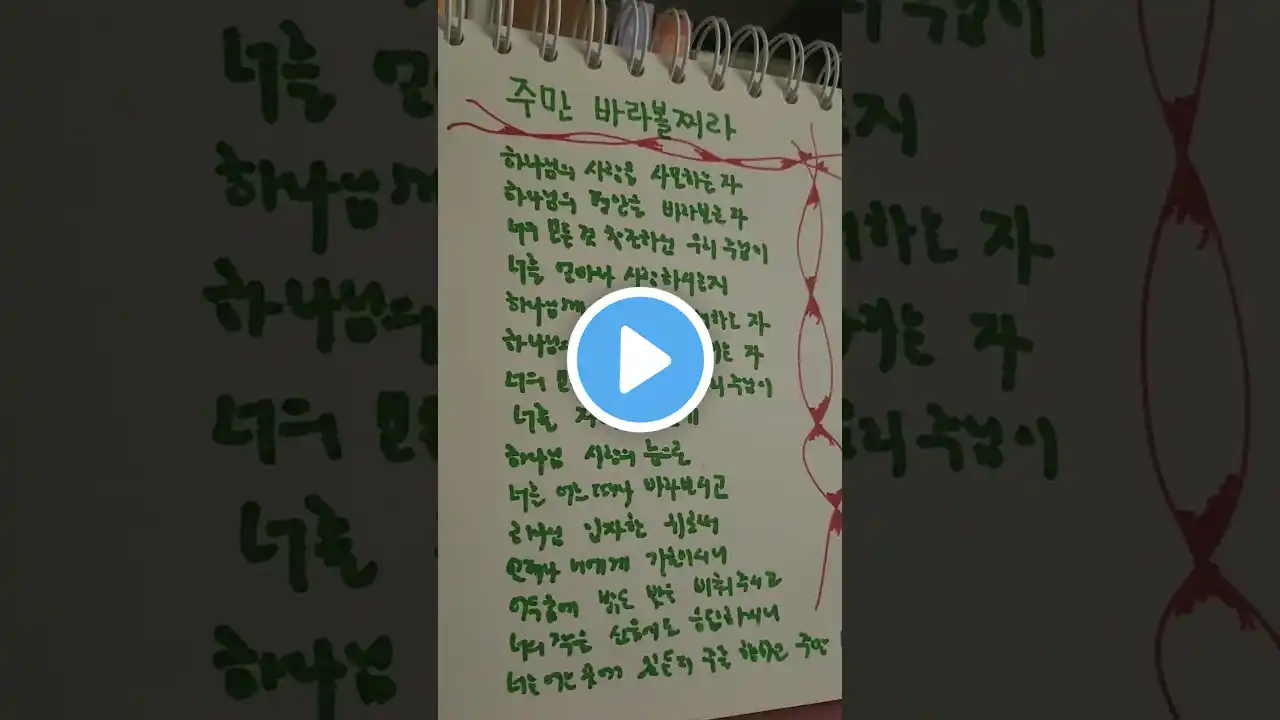 주만 바라볼찌라
하나님의 사랑을 사모하는 자
하나님의 평안을 바라보는 자
너의 모든 것 창조하신 우리 주님이
너를 얼마나 사랑하시는지
하나님께 하는 자
하나님의 자
너의 주님이
너를
하나님 사랑의 눈으로
너를 어느 때나 바라보시고
하나님 인자한 귀로써
언제나 너에게 기울이시니
어두움에 밝은 빛을 비춰주시고
너의 작은 신음에도 응답하시니
너는 어느 곳에 있든지 주를 향하고 주만